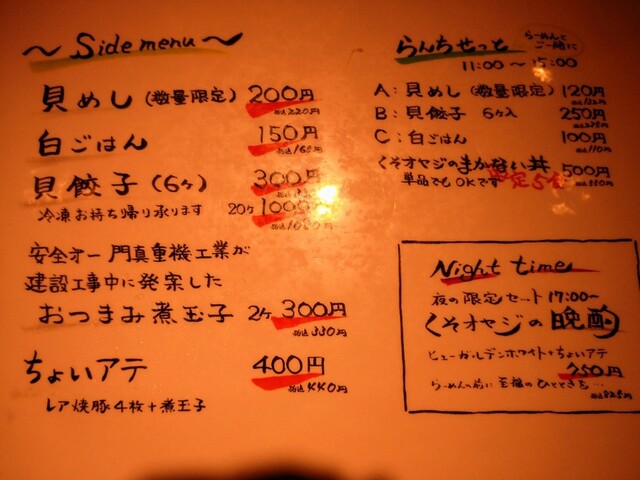 ～ Side menu ～
貝めし (数量限定) 200円
税込220円
白ごはん 150円
税込165円
貝餃子 (6ヶ) 300円
冷凍お持ち帰り承ります 20ヶ 1000円
税込1080円
安全オー門真重機工業が
建設工事中に発案した
おつまみ煮玉子 2ヶ 300円
税込330円
ちょいアテ 400円
税込440円
レア焼豚4枚+煮玉子
らんちせっと らーめんと ご一緒に
11:00 ～ 15:00
A:貝めし (数量限定) 120円
税込132円
B:貝餃子 6ヶ入 250円
税込275円
C:白ごはん 100円
税込110円
くそオヤジのまかない丼 500円
単品でもOKです 限定5食 税込550円
Night time
夜の限定セット 17:00~
くそオヤジの晩酌
ヒューガルデンホワイト+ちょいアテ
750円
らーめんの前に至福のひとときを… 税込825円